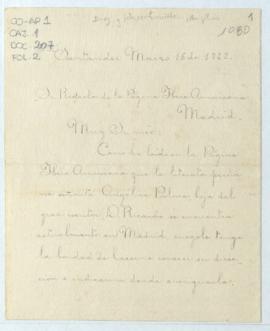 CO-AP.1
CAJ. 1
DOC. 207
FOL. 2
1
1080
Santander Marzo 15 de 1922.
S. Redactor de la Página Ibero Americana
Madrid.
Muy Sr. mio:
Como he leido en la Página
Ibero Americana que la literata perua
na señorita Angélica Palma, hija del
gran escritor D. Ricardo se encuentra
actualmente en Madrid, ruégole tenga
la bondad de hacer a conocer su direc
ción o indicarme donde averiguarla.